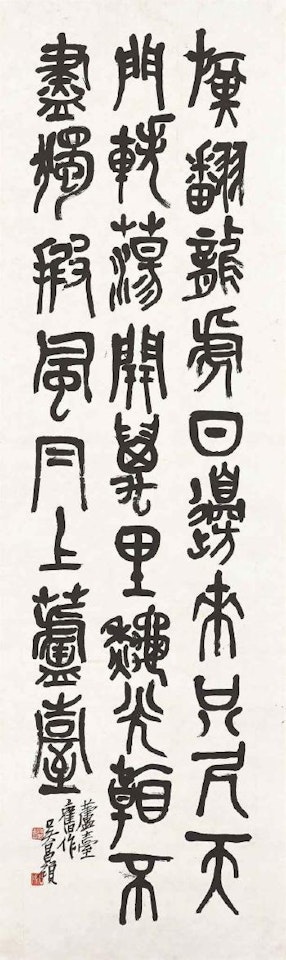 翻龍虎日邊來只尺天
門軼蕩開里龝光看不
盡獨風月上蘆臺
蘆臺
舊作
吳昌碩